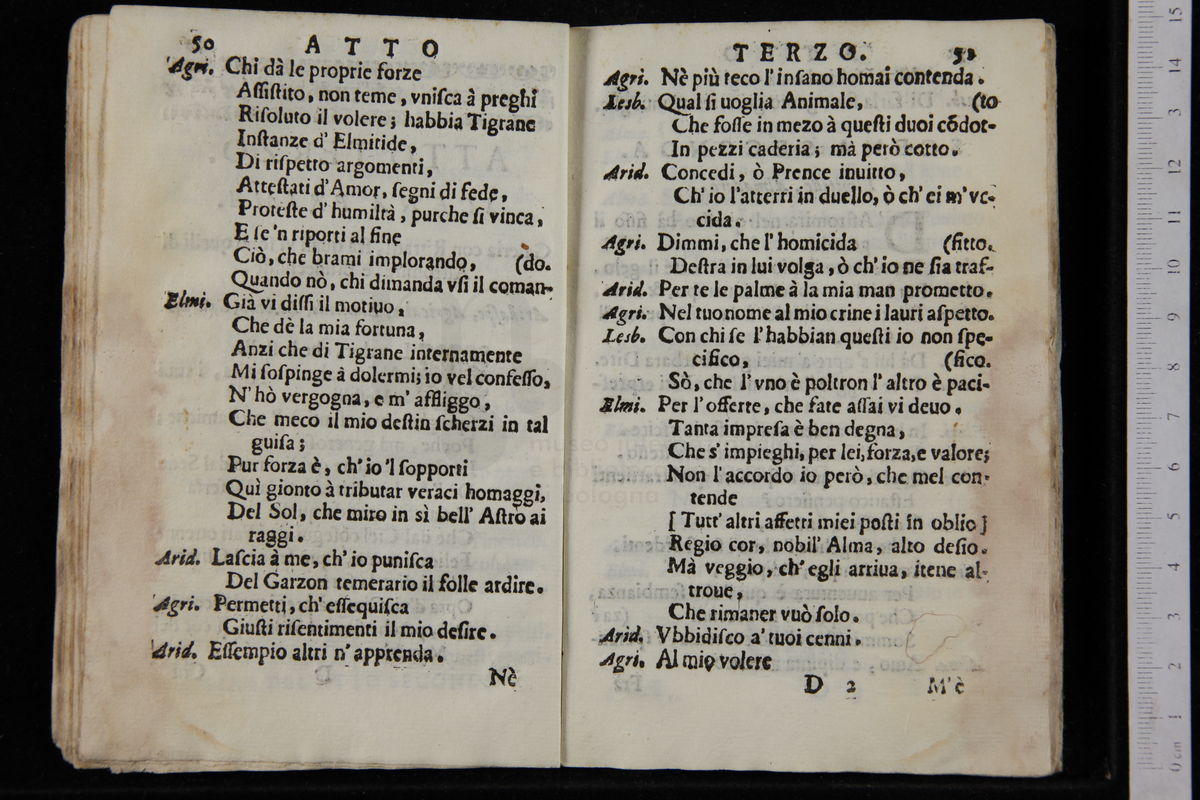 50 ATTO
Agri. Chi dà le proprie forze
Aſſiſtito, non teme, vniſca à preghi
Riſoluto il volere; habbia Tigrane
Inſtanze d' Elmitide,
Di riſpetto argomenti,
Atteſtati d'Amor, ſegni di fede,
Proteſte d' humiltà, purche ſi vinca,
E ſe 'n riporti al fine
Ciò, che brami implorando, (do.
Quando nò, chi dimanda vſi il coman-
Elmi. Già vi diſſi il motiuo,
Che dè la mia fortuna,
Anzi che di Tigrane internamente
Mi ſoſpinge à dolermi; io vel confeſſo,
N' hò vergogna, e m' affliggo,
Che meco il mio deſtin ſcherzi in tal
guiſa;
Pur forza è, ch' io 'l ſopporti
Quì gionto à tributar veraci homaggi,
Del Sol, che miro in sì bell' Aſtro ai
raggi.
Arid. Laſcia à me, ch' io puniſca
Del Garzon temerario il folle ardire.
Agri. Permetti, ch' eſſequiſca
Giuſti riſentimenti il mio deſire.
Arid. Eſſempio altri n' apprenda.
Nè
TERZO. 51
Agri. Nè più teco l' inſano homai contenda.
Lesb. Qual ſi uoglia Animale, (to
Che foſſe in mezo à queſti duoi cõdot-
In pezzi caderia; mà però cotto.
Arid. Concedi, ò Prence inuitto,
Ch' io l'atterri in duello, ò ch' ei m' vc-
cida.
Agri. Dimmi, che l' homicida (fitto.
Deſtra in lui volga, ò ch' io ne ſia traf-
Arid. Per te le palme à la mia man prometto.
Agri. Nel tuo nome al mio crine i lauri aſpetto.
Lesb. Con chi ſe l' habbian queſti io non ſpe-
cifico, (fico.
Sò, che l' vno è poltron l' altro è paci-
Elmi. Per l' offerte, che fate aſſai vi deuo.
Tanta impreſa è ben degna,
Che s' impieghi, per lei, forza, e valore;
Non l' accordo io però, che mel con-
tende
[ Tutt' altri affetti miei poſti in oblio ]
Regio cor, nobil' Alma, alto deſio.
Mà veggio, ch' egli arriua, itene al-
troue,
Che rimaner vuò ſolo.
Arid. Vbbidiſco a' tuoi cenni.
Agri. Al mio volere
D 2 M'è